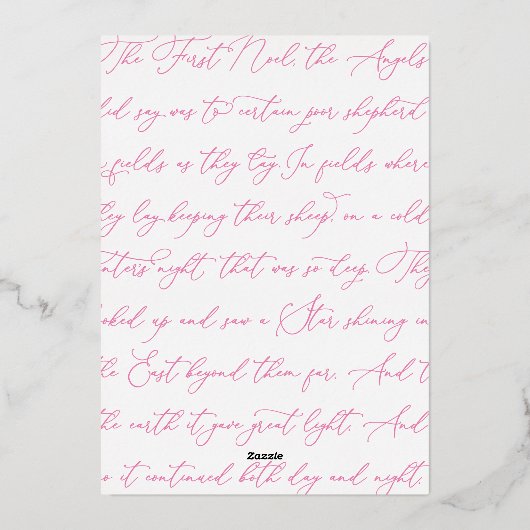 The First Noel, the Angels
did say was to certain poor shepherd
n fields as they lay. In fields where
hey lay keeping their sheep, on a cold
inter's night that was so deep. They
ooked up and saw a Star shining in
the East beyond them far. And t
the earth it gave great light. And
Zazzle
so it continued both day and night.